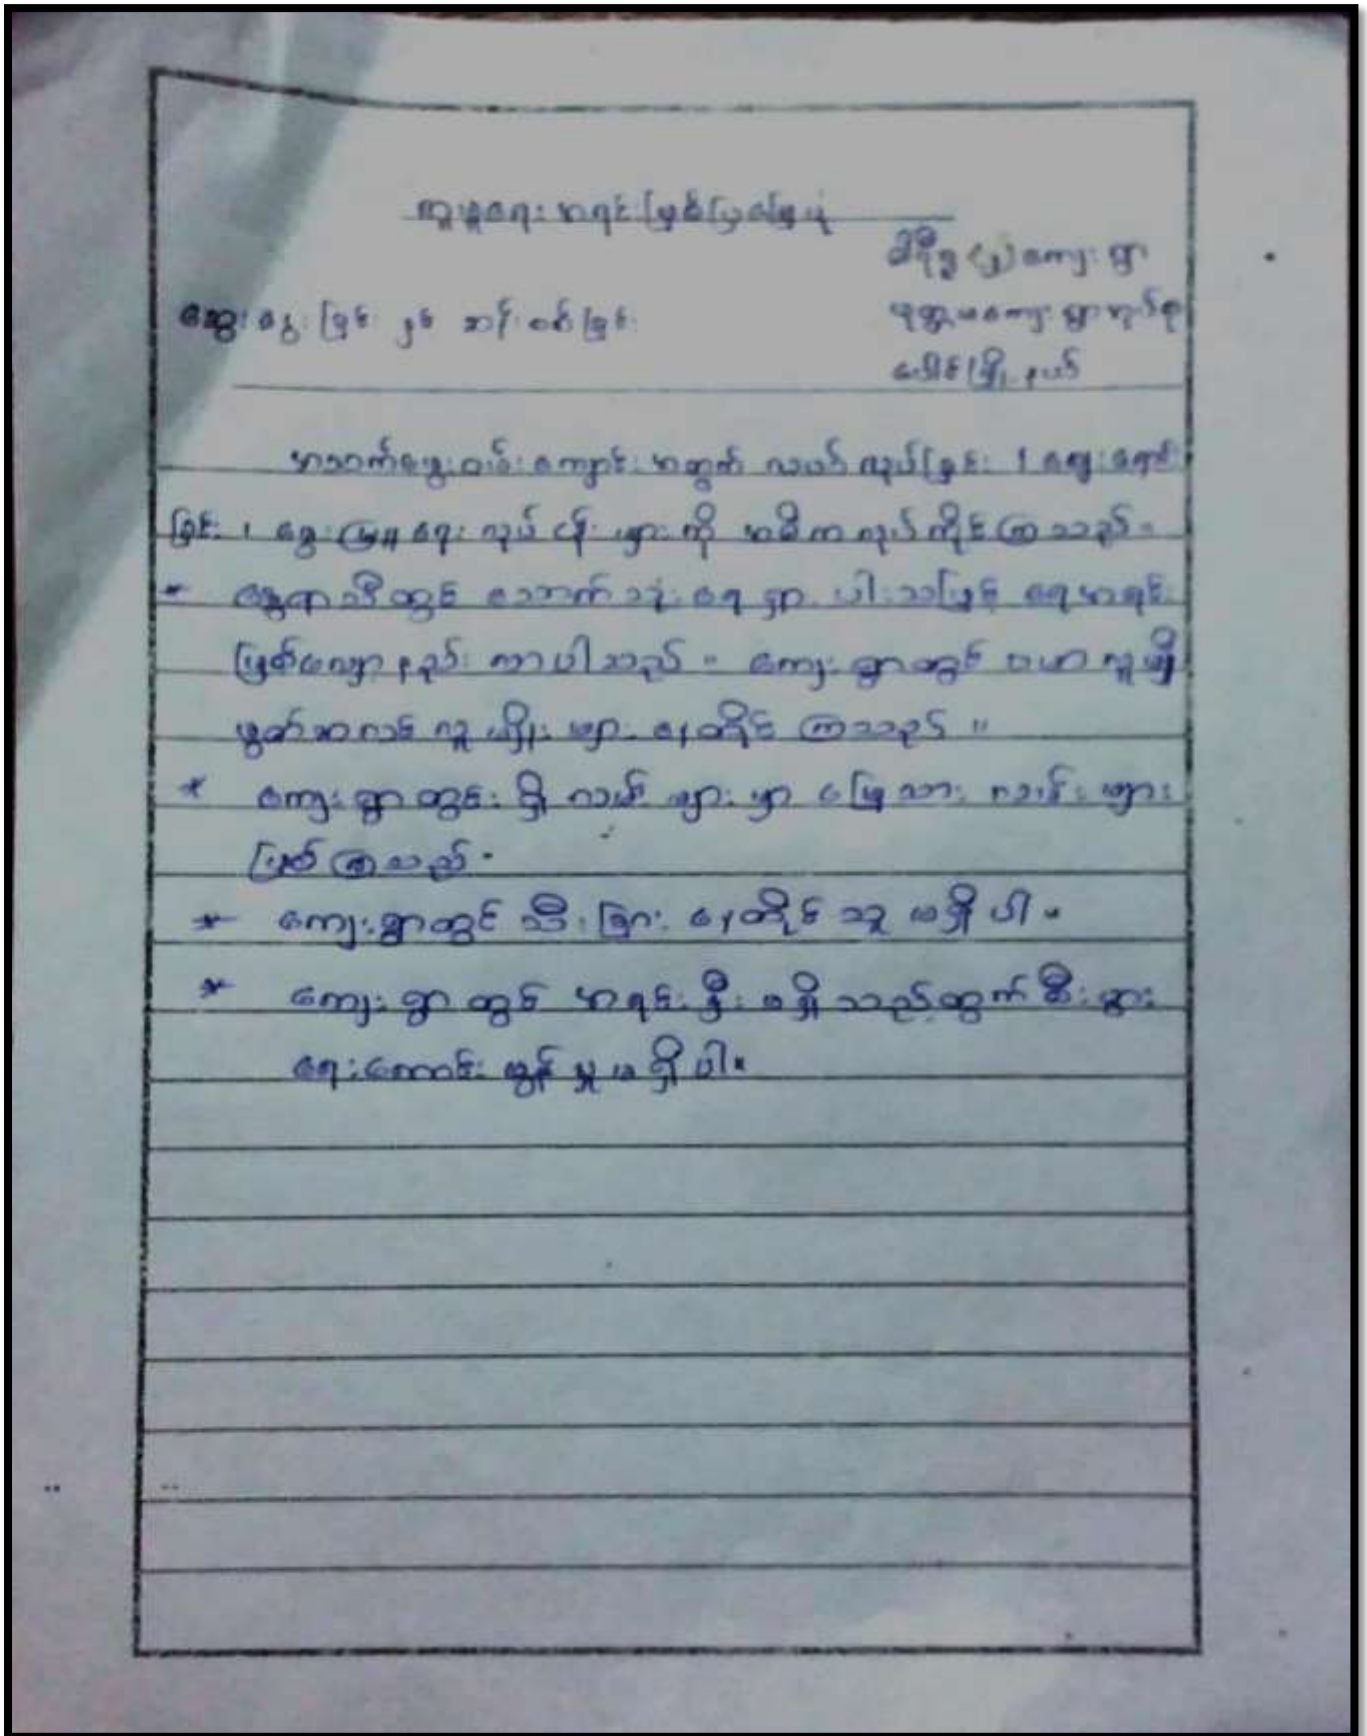 လူမှုရေး အရင်းမြစ်ပြမြေပုံ
ကျေးရွာ
ဆွေးနွေးခြင်း နှင့် ဆန်းစစ်ခြင်း
ကျေးရွာအုပ်စု
ပေါင်မြို့နယ်
အသက်မွေးဝမ်းကျောင်း အတွက် လယ်ယာလုပ်ခြင်း ၊
ခြင်း ၊ မွေးမြူရေး လုပ်ငန်း များ ကို အဓိက လုပ်ကိုင် ကြသည် ။
* နွေရာသီတွင် သောက်သုံးရေ ရှား ပါးသဖြင့် ရေအရင်း
မြစ်မလျာ နည်း လာပါသည် ။ ကျေးရွာတွင် ဗမာ လူမျိုး
မွတ်ဆလင် လူမျိုး များ နေထိုင် ကြသည် ။
* ကျေးရွာ တွင်း ရှိ လမ်း များ မှာ မြေသား လမ်း များ
ဖြစ် ကြသည် ။
* ကျေးရွာတွင် သီးခြား နေထိုင် သူ မရှိ ပါ ။
* ကျေးရွာ တွင် အရင်းနှီး မရှိ သည့်တွက် စီးပွား
ရေး ကောင်း မွန် မှု မရှိ ပါ ။